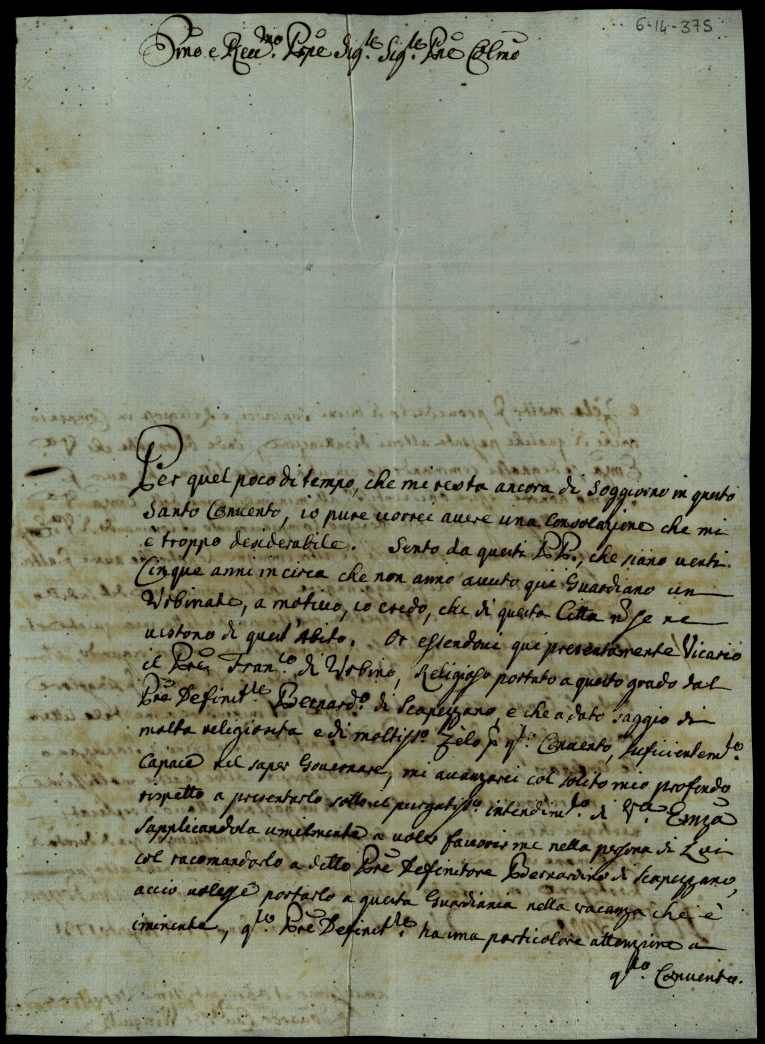 6-14-375
Emo e Revmo Prpe Sigre Sigre Prne Colmo
Per quel poco di tempo, che mi resta ancora di Soggiorno in questo
Santo Convento, io pure vorrei avere una Consolazione che mi
è troppo desiderabile. Sento da questi PP., che siano venti
Cinque anni in circa che non anno avuto qui Guardiano un
Urbinate, a motivo, io credo, che di questa Citta nõ se ne
vestono di quest'Abito. Or essendovi qui presentamente Vicario
il Pre Franco di Urbino, Religioso portato a questo grado dal
Pre Definitre Bernardo di Scapezzano, e che a dato saggio di
molta religiosita e di moltisso Zelo p qto Convento, suficientemte
Capace nel saper Governare, mi avanzarei col solito mio profondo
rispetto a presentarlo sotto il purgatisso intendimto di Va Emza
sapplicandola umilmente a voler favorirme nella persona di Lui
col racomandarlo a detto Pre Definitore Bernardino di Scapezzano,
acciò volesse portarlo a questa Guardiania nella vacanza che è
iminente, qto Pre Definitre ha una particolore attenzione a
qto Convento.